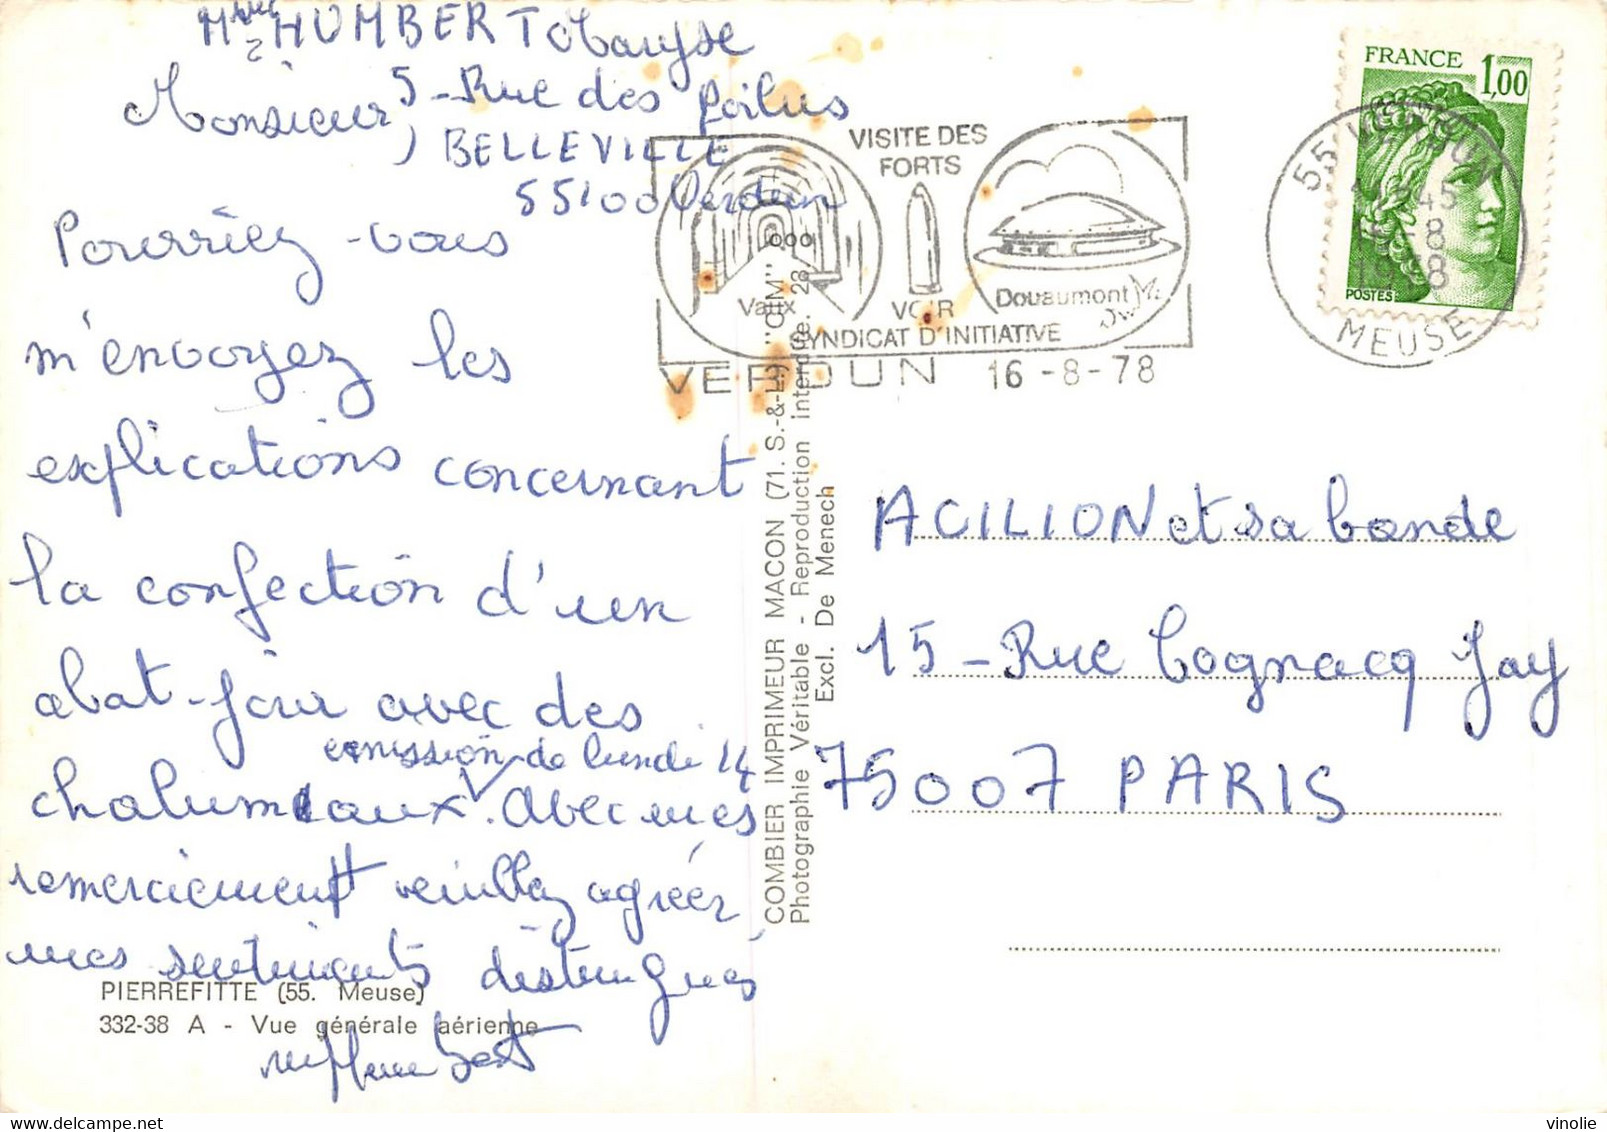 Mme HUMBERT Maryse
5 - Rue des Poilus
BELLEVILLE
55100 Verdun
Monsieur,
Pourriez-vous
m'envoyez les
explications concernant
la confection d'un
abat-jour avec des
emission de lundi 14
chalumeaux. Avec mes
remerciement veuillez agréer
mes sentiments distingués
PIERREFITTE (55. Meuse)
332-38 A - Vue générale aérienne
COMBIER IMPRIMEUR MACON (71. S.-&-L.) "CIM"
Photographie Véritable - Reproduction interdite. 28
Excl. De Menech
VISITE DES
FORTS
Vaux
VOIR
Douaumont
SYNDICAT D'INITIATIVE
VERDUN 16-8-78
FRANCE 1,00
POSTES
55 VERDUN
8
1978
MEUSE
ACILION et sa bande
15 - Rue Cognacq Jay
75007 PARIS
vinolie